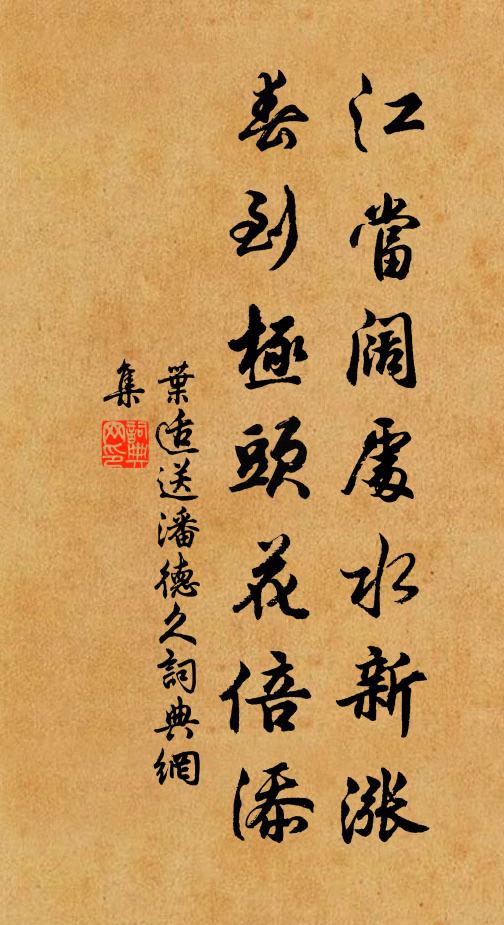 江當闊處水新漲
春到極頭花倍添
葉適送潘德久詞典網
集
詞典
网印